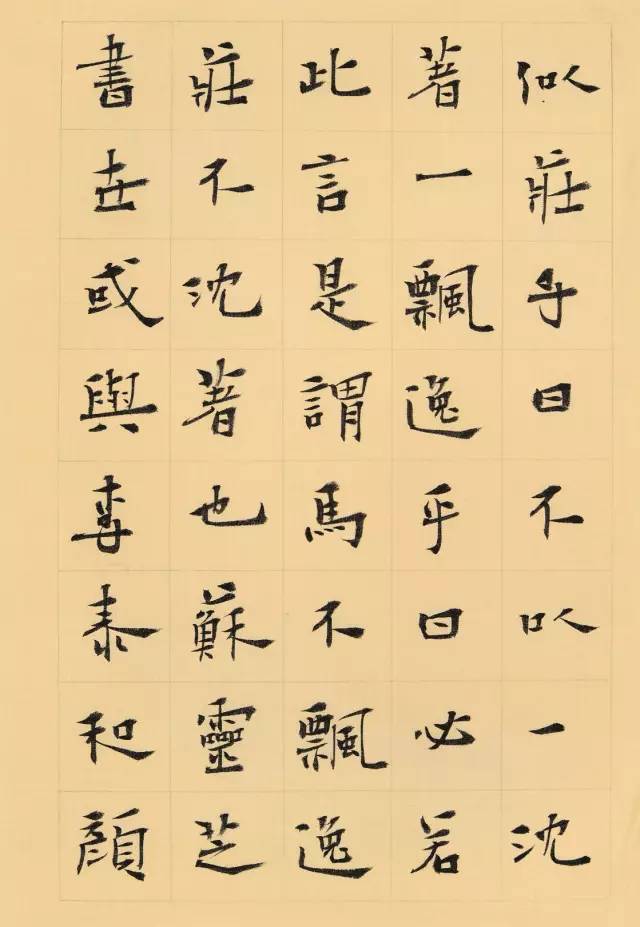 似莊子曰不以一沈
著一飄逸乎曰必若
此言是謂馬不飄逸
莊不沈著也蘇靈芝
書世或與李泰和顏